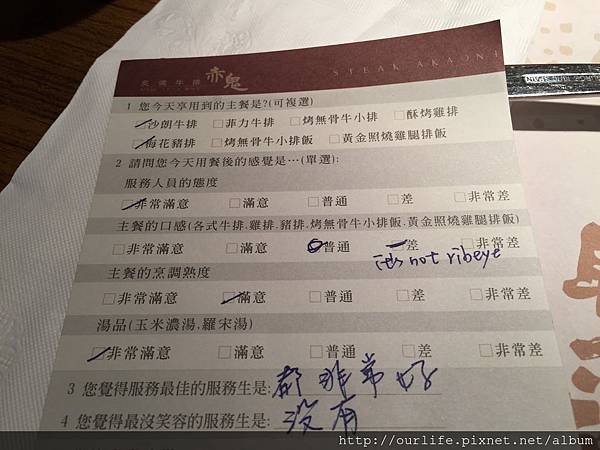 炙燒牛排 赤鬼 STEAK AKAONI
1 您今天享用到的主餐是?(可複選)
沙朗牛排 □菲力牛排 □烤無骨牛小排 □酥烤雞排
梅花豬排 □烤無骨牛小排飯 □黃金照燒雞腿排飯
2 請問您今天用餐後的感覺是…(單選):
服務人員的態度
非常滿意 □滿意 □普通 □差 □非常差
主餐的口感(各式牛排.雞排.豬排.烤無骨牛小排飯.黃金照燒雞腿排飯)
□非常滿意 □滿意 □普通 □差 □非常差
it's not ribeye
主餐的烹調熟度
□非常滿意 □滿意 □普通 □差 □非常差
湯品(玉米濃湯,羅宋湯)
□非常滿意 □滿意 □普通 □差 □非常差
3 您覺得服務最佳的服務生是:都非常好
4 您覺得最沒笑容的服務生是:沒有
http://ourlife.pixnet.net/album